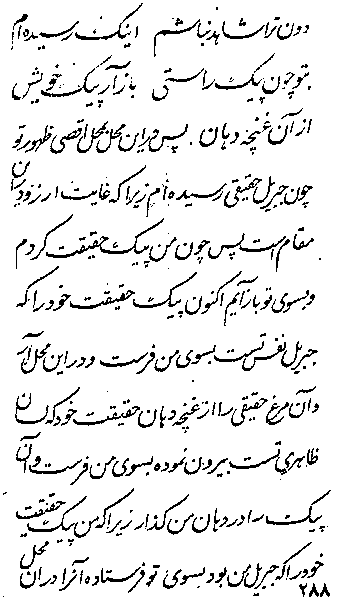 دون ترا شاهد نباشم اینک رسیده ام
بتو چون پیک راستی باز آر پیک خویش
از آن غنچه دهان . پس در این محل بمحل اقصی ظهور تو
چون جبریل حقیقی رسیده ام زیرا که غایت ارزو در ان
مقام است پس چون من پیک حقیقت کردم
و بسوی تو باز آیم اکنون پیک حقیقت خود را که
جبریل نفس تست بسوی من فرست و در این محل آر
و آن مرغ حقیقی را از غنچه دهان حقیقت خود که لسان
ظاهری تست بیرون نموده بسوی من فرست و آن
پیک را در دهان من گذار زیرا که من پیک حقیقت
خود را که جبریل من بود بسوی تو فرستاده آنرا در ان محل
۲۸۸